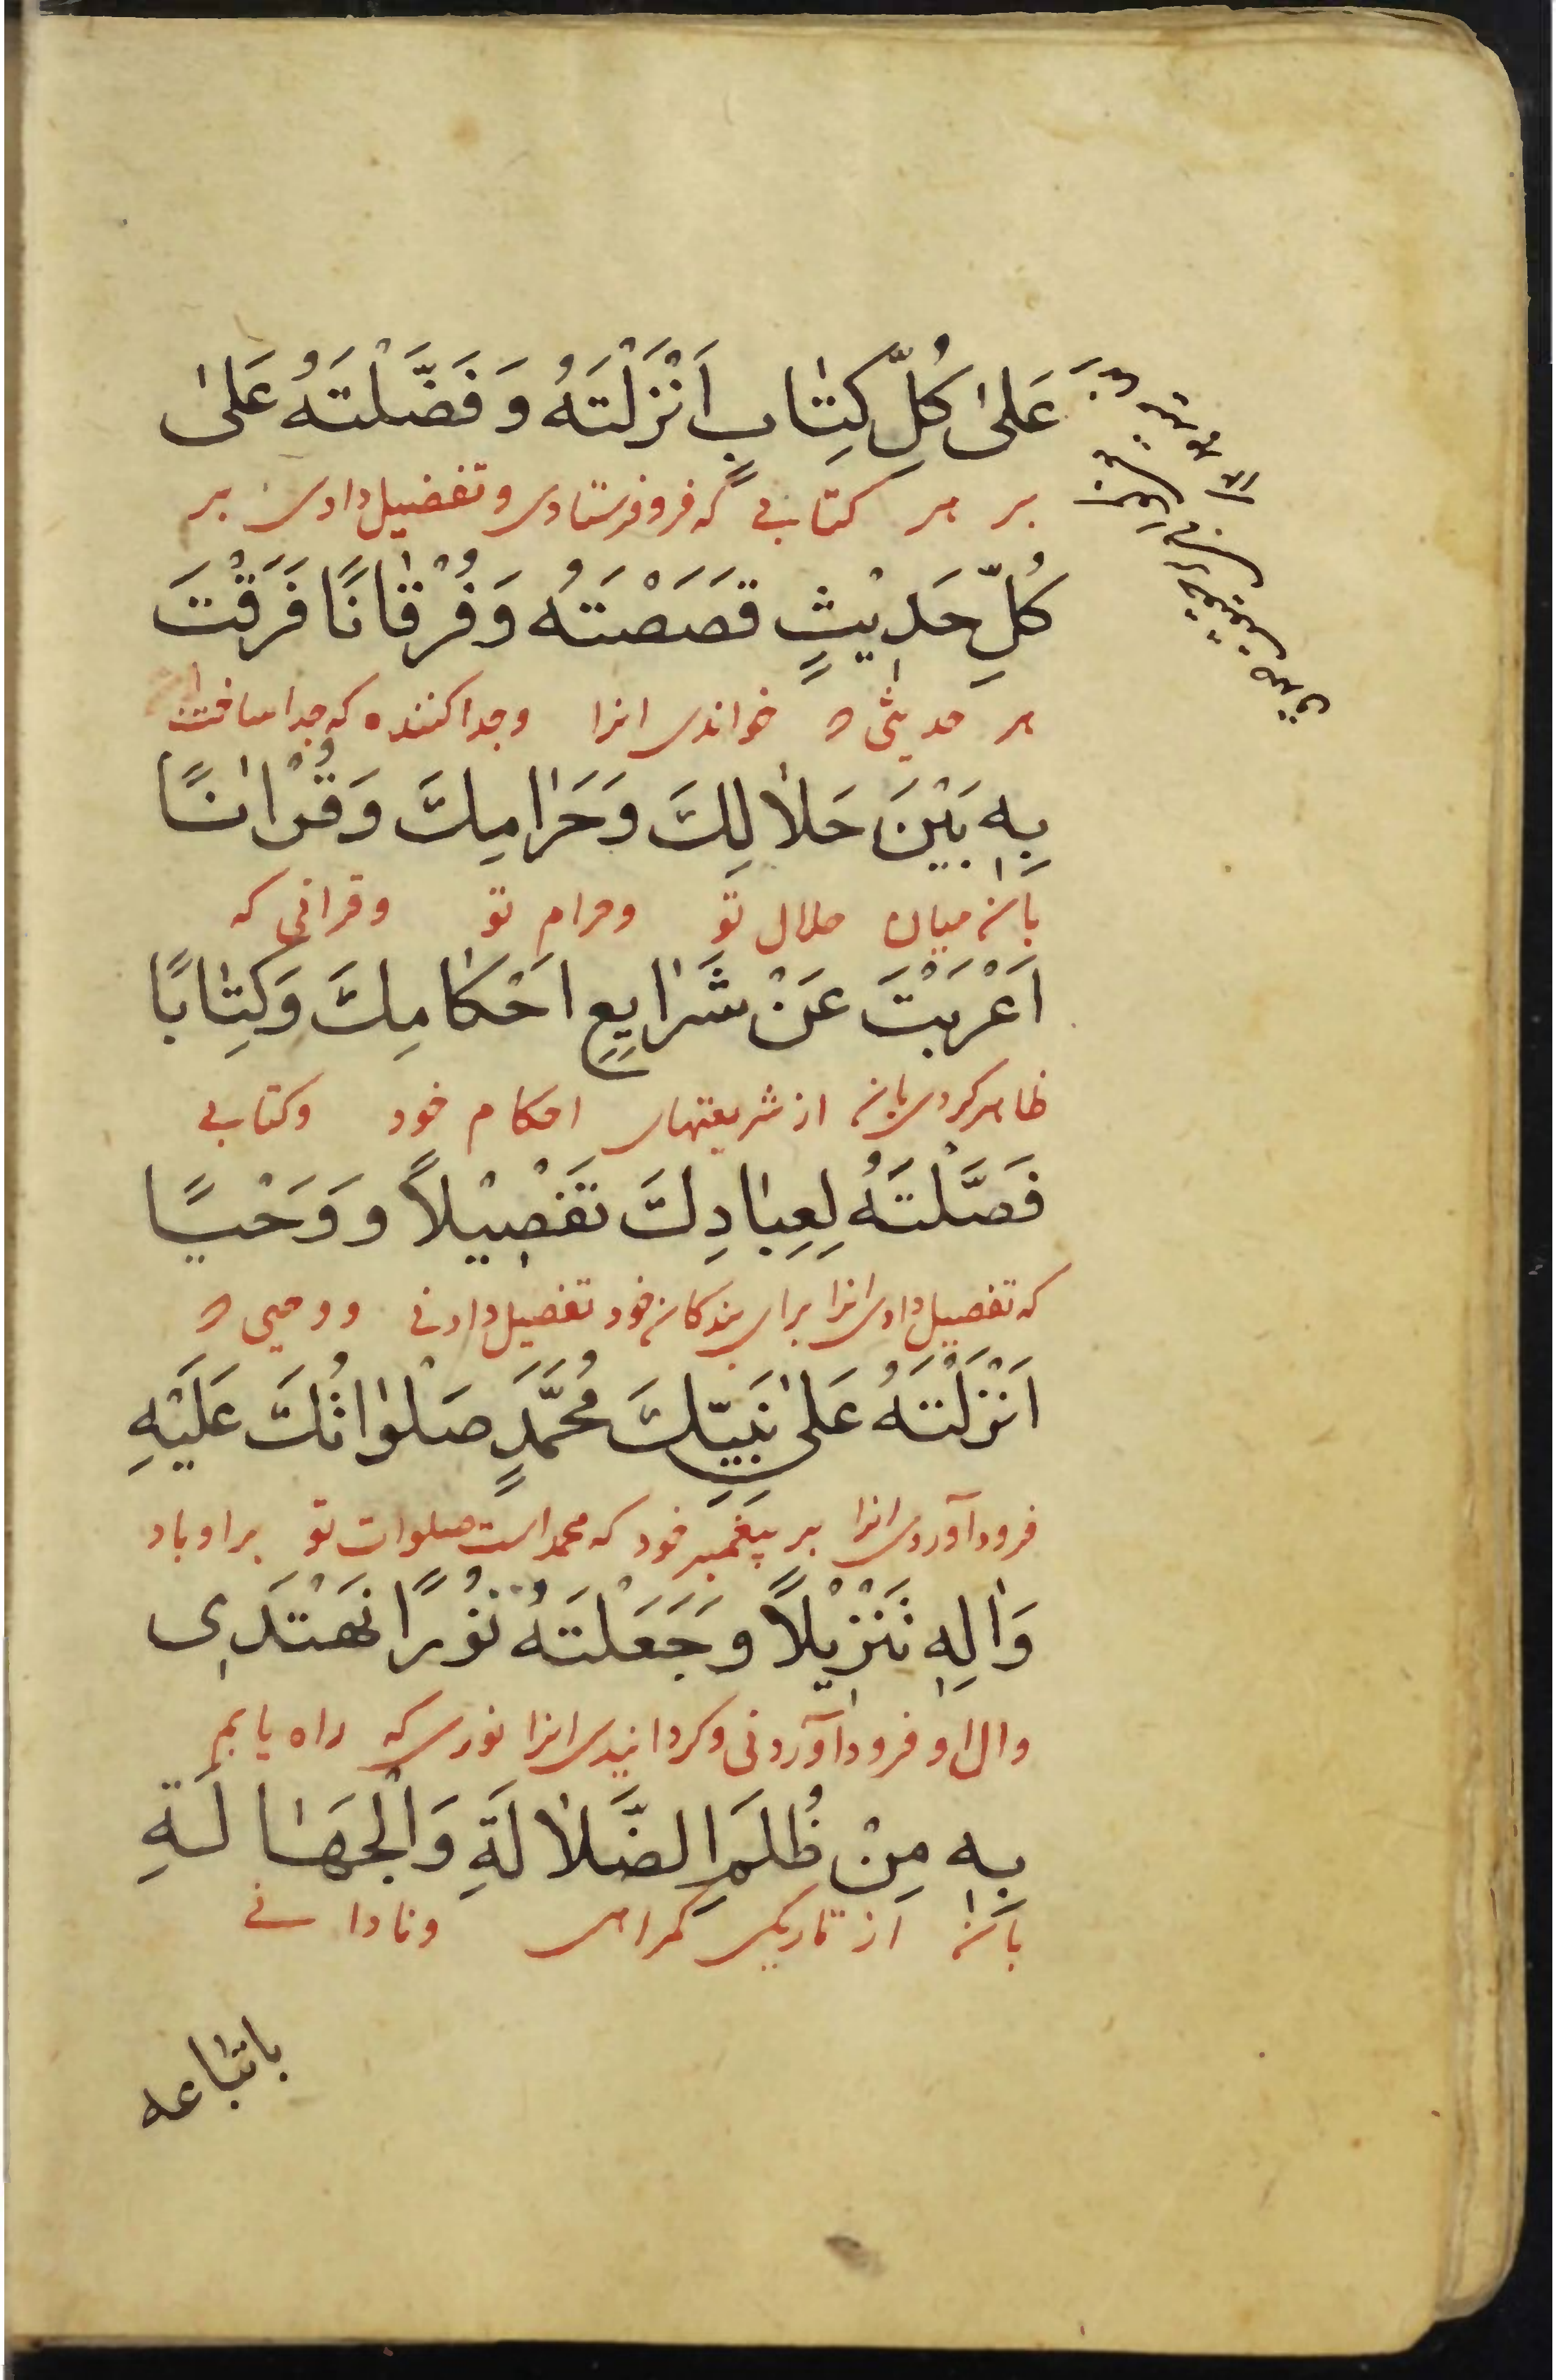 عَلىٰ كُلِّ كِتٰابٍ اَنْزَلْتَهُ وَ فَضَّلْتَهُ عَلىٰ
بر هر کتابی که فرو فرستادی و تفضیل دادی بر
كُلِّ حَديْثٍ قَصَصْتَهُ وَ فُرْقٰانًا فَرَقْتَ
هر حدیثی که خواندی انرا وجدا کننده که جدا ساختی
بِهِ بَيْنَ حَلاٰلِكَ وَ حَرٰامِكَ وَ قُرْاٰنًا
بان میان حلال تو وحرام تو وقرانی که
اَعْرَبْتَ عَنْ شَرٰايِعِ اَحْكٰامِكَ وَ كِتٰابًا
ظاهر کردی بان از شریعتهای احکام خود وکتابی
فَصَّلْتَهُ لِعِبٰادِكَ تَفْصِيْلاً وَ وَحْيًا
که تفصیل دادی انرا برای بندکان خود تفصیل دادنی و وحیی که
اَنْزَلْتَهُ عَلىٰ نَبِيِّكَ مُحَمَّدٍ صَلَوٰاتُكَ عَلَيْهِ
فرود آوردی انرا بر پیغمبر خود که محمد است صلوات تو بر او باد
وَاٰلِهِ تَنْزِيْلاً وَ جَعَلْتَهُ نُوْرًا نَهْتَدِى
وال او فرود آوردنی وکردانیدی انرا نوری که راه یابیم
بِهِ مِنْ ظُلَمِ الضَّلاٰلَةِ وَالْجَهٰالَةِ
بان از تاریکی کمراهی ونادانی
باتباعه